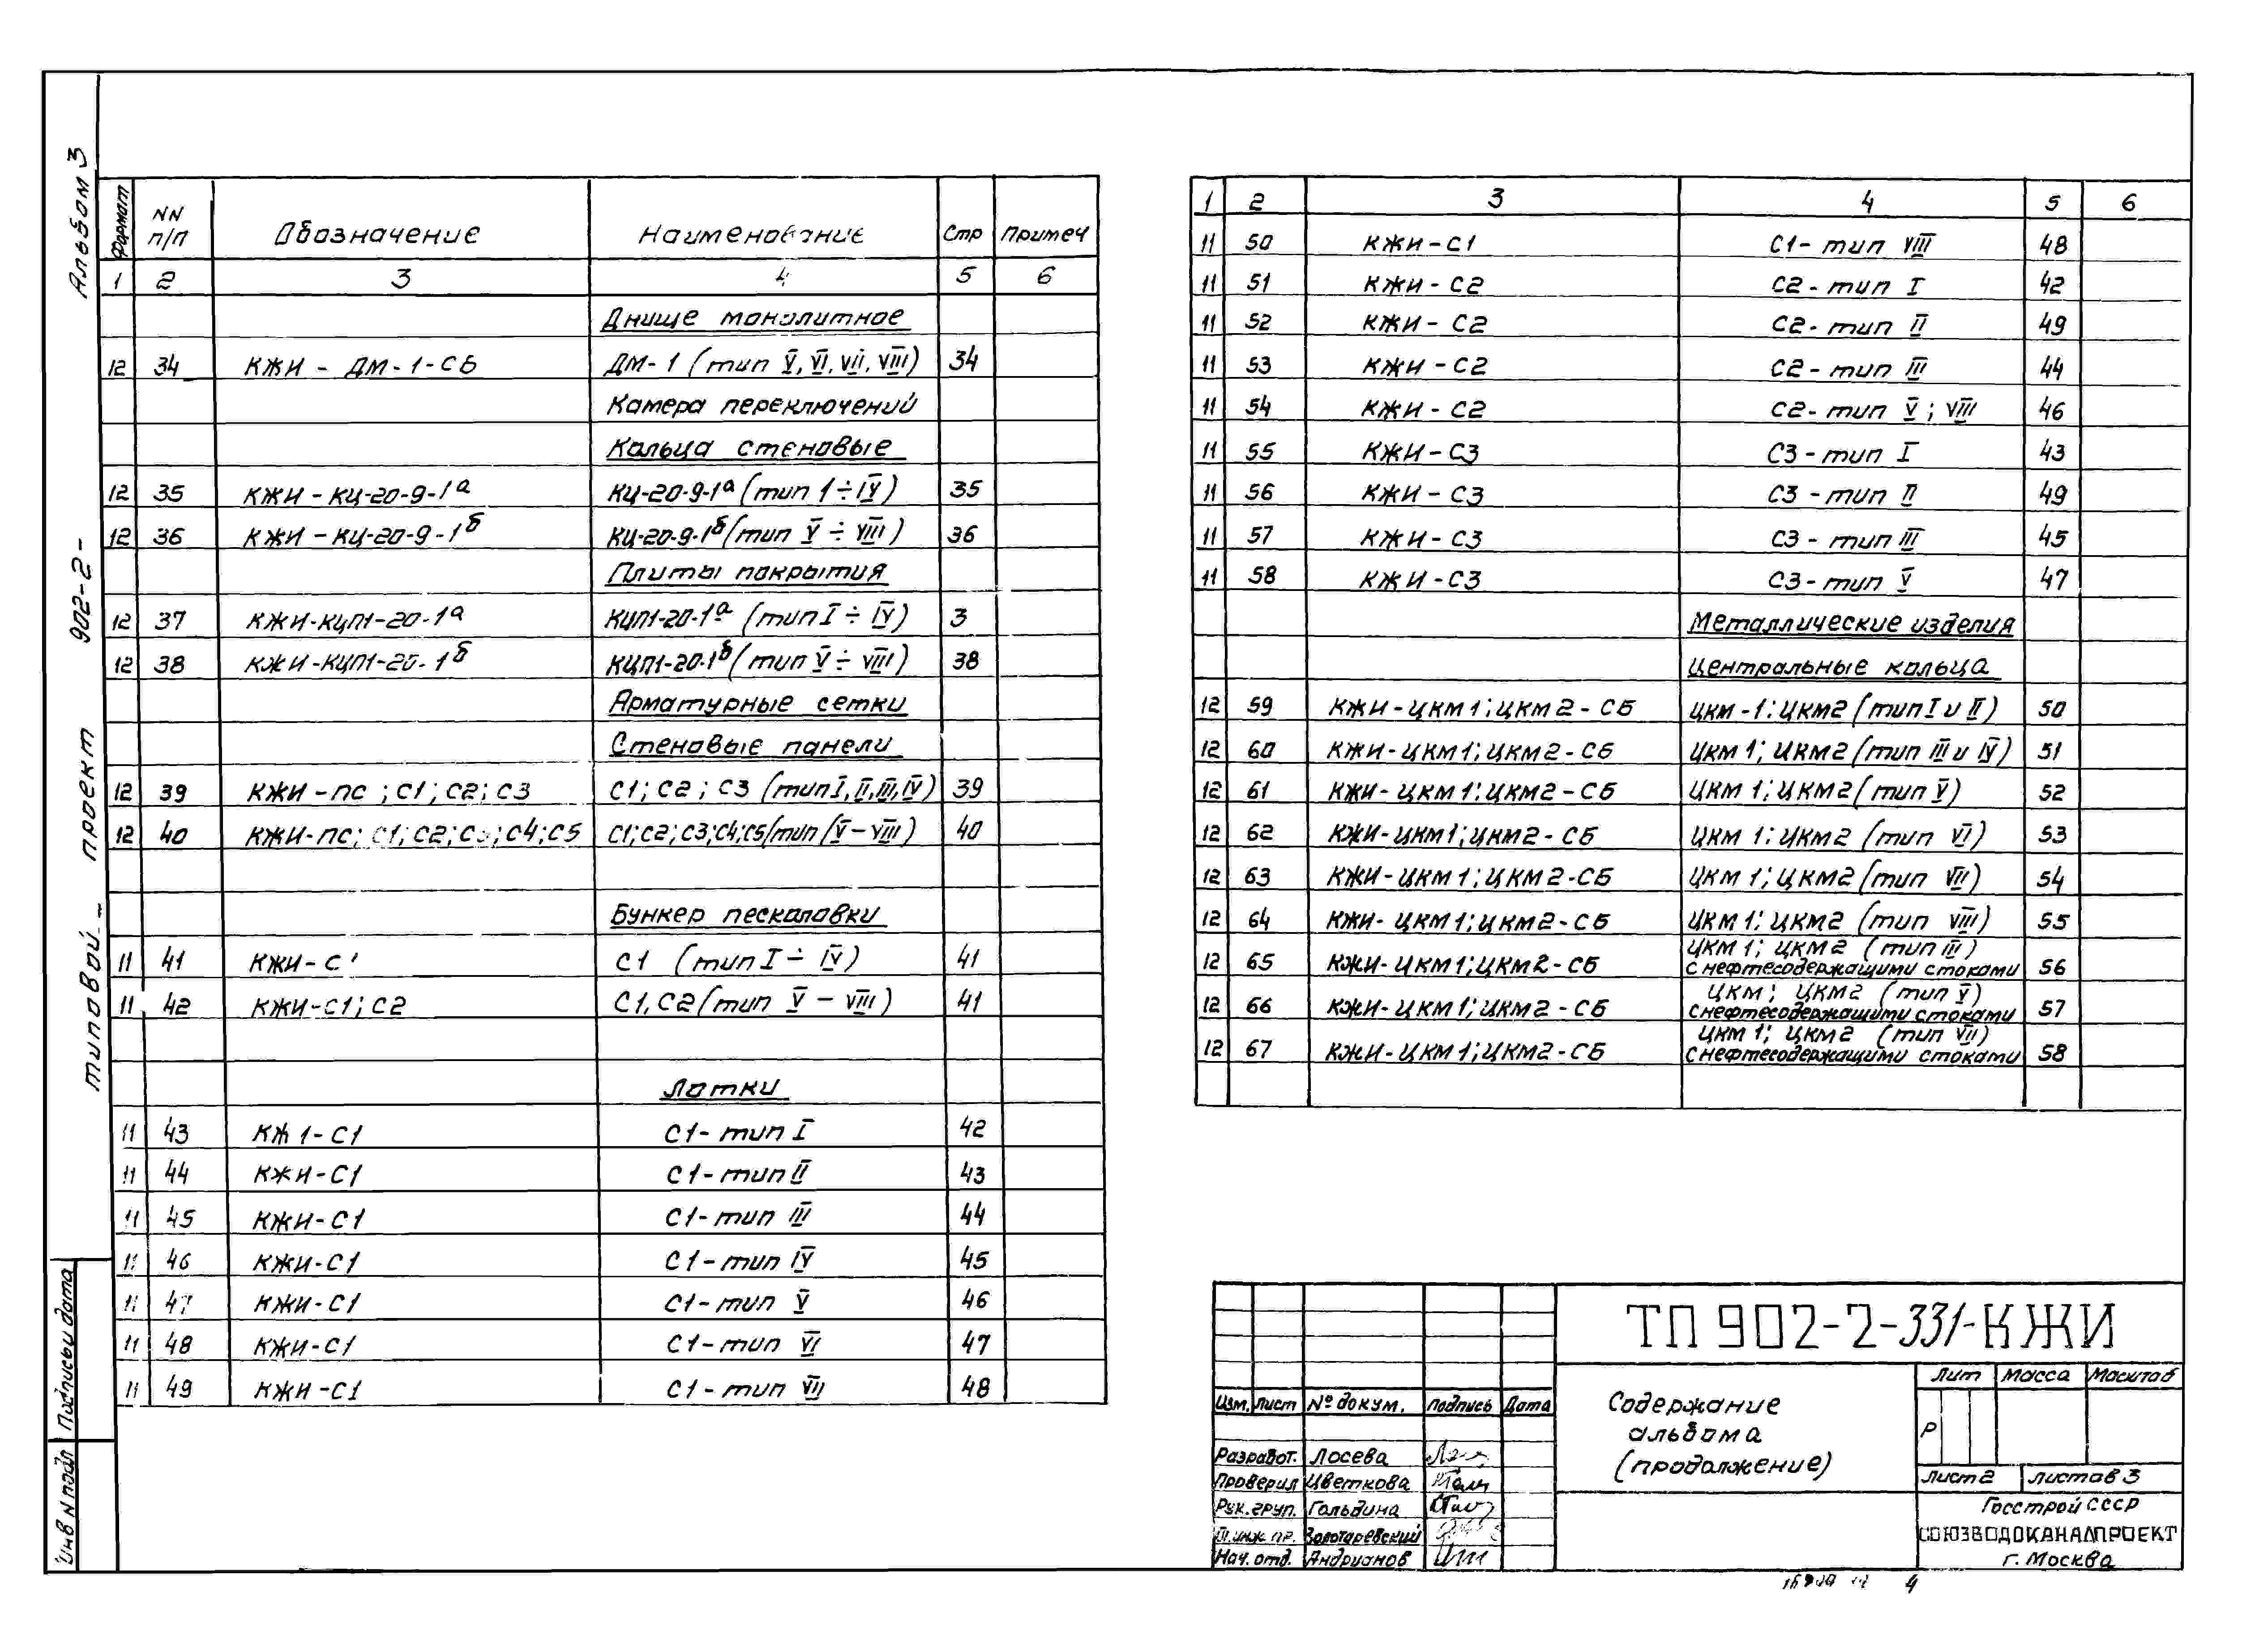 Альбом 3
типовой проект 902-2-
Формат NN п/п Обозначение Наименование Стр Примеч
1 2 3 4 5 6
Днище монолитное
12 34 КЖИ - ДМ-1-СБ ДМ-1 (тип V, VI, VII, VIII) 34
Камера переключений
Кольца стеновые
12 35 КЖИ - КЦ-20-9-1а КЦ-20-9-1а (тип 1 ÷ IV) 35
12 36 КЖИ - КЦ-20-9-1б КЦ-20-9-1б (тип V ÷ VIII) 36
Плиты покрытия
12 37 КЖИ-КЦП1-20-1а КЦП1-20-1а (тип I ÷ IV) 3
12 38 КЖИ-КЦП1-20-1б КЦП1-20-1б (тип V ÷ VIII) 38
Арматурные сетки
Стеновые панели
12 39 КЖИ - ПС ; С1; С2; С3 С1; С2; С3 (тип I, II, III, IV) 39
12 40 КЖИ-ПС; С1; С2; С3; С4; С5 С1; С2; С3; С4; С5 (тип (V - VIII) 40
Бункер песколовки
11 41 КЖИ-С1 С1 (тип I ÷ IV) 41
11 42 КЖИ-С1; С2 С1, С2 (тип V - VIII) 41
Лотки
11 43 КЖ1-С1 С1- тип I 42
11 44 КЖИ-С1 С1- тип II 43
11 45 КЖИ-С1 С1- тип III 44
11 46 КЖИ-С1 С1- тип IV 45
11 47 КЖИ-С1 С1- тип V 46
11 48 КЖИ-С1 С1- тип VI 47
11 49 КЖИ-С1 С1- тип VII 48
1 2 3 4 5 6
11 50 КЖИ-С1 С1- тип VIII 48
11 51 КЖИ-С2 С2- тип I 42
11 52 КЖИ-С2 С2- тип II 49
11 53 КЖИ-С2 С2- тип III 44
11 54 КЖИ-С2 С2- тип V ; VIII 46
11 55 КЖИ-С3 С3- тип I 43
11 56 КЖИ-С3 С3- тип II 49
11 57 КЖИ-С3 С3- тип III 45
11 58 КЖИ-С3 С3- тип V 47
Металлические изделия
Центральные кольца
12 59 КЖИ-ЦКМ1; ЦКМ2-СБ ЦКМ-1; ЦКМ2 (тип I и II) 50
12 60 КЖИ-ЦКМ1; ЦКМ2-СБ ЦКМ1; ЦКМ2 (тип III и IV) 51
12 61 КЖИ-ЦКМ1; ЦКМ2-СБ ЦКМ1; ЦКМ2 (тип V) 52
12 62 КЖИ-ЦКМ1; ЦКМ2-СБ ЦКМ1; ЦКМ2 (тип VI) 53
12 63 КЖИ-ЦКМ1; ЦКМ2-СБ ЦКМ1; ЦКМ2 (тип VII) 54
12 64 КЖИ-ЦКМ1; ЦКМ2-СБ ЦКМ1; ЦКМ2 (тип VIII) 55
ЦКМ1; ЦКМ2 (тип III)
12 65 КЖИ-ЦКМ1; ЦКМ2-СБ с нефтесодержащими стоками 56
ЦКМ; ЦКМ2 (тип V)
12 66 КЖИ-ЦКМ1; ЦКМ2-СБ с нефтесодержащими стоками 57
ЦКМ1; ЦКМ2 (тип VII)
12 67 КЖИ-ЦКМ1; ЦКМ2-СБ с нефтесодержащими стоками 58
Подписьи дата
Инв N подл
ТП 902-2-331-КЖИ
Изм. Лист № докум. Подпись Дата
Разработ. Лосева
Проверил Цветкова
Рук. груп. Гольдина
Гл. инж. пр. Золотаревский
Нач. отд. Андрианов
Содержание
альбома
(продолжение)
Лит Масса Масштаб
Р
Лист 2 Листов 3
Госстрой СССР
СОЮЗВОДОКАНАЛПРОЕКТ
г. Москва
4